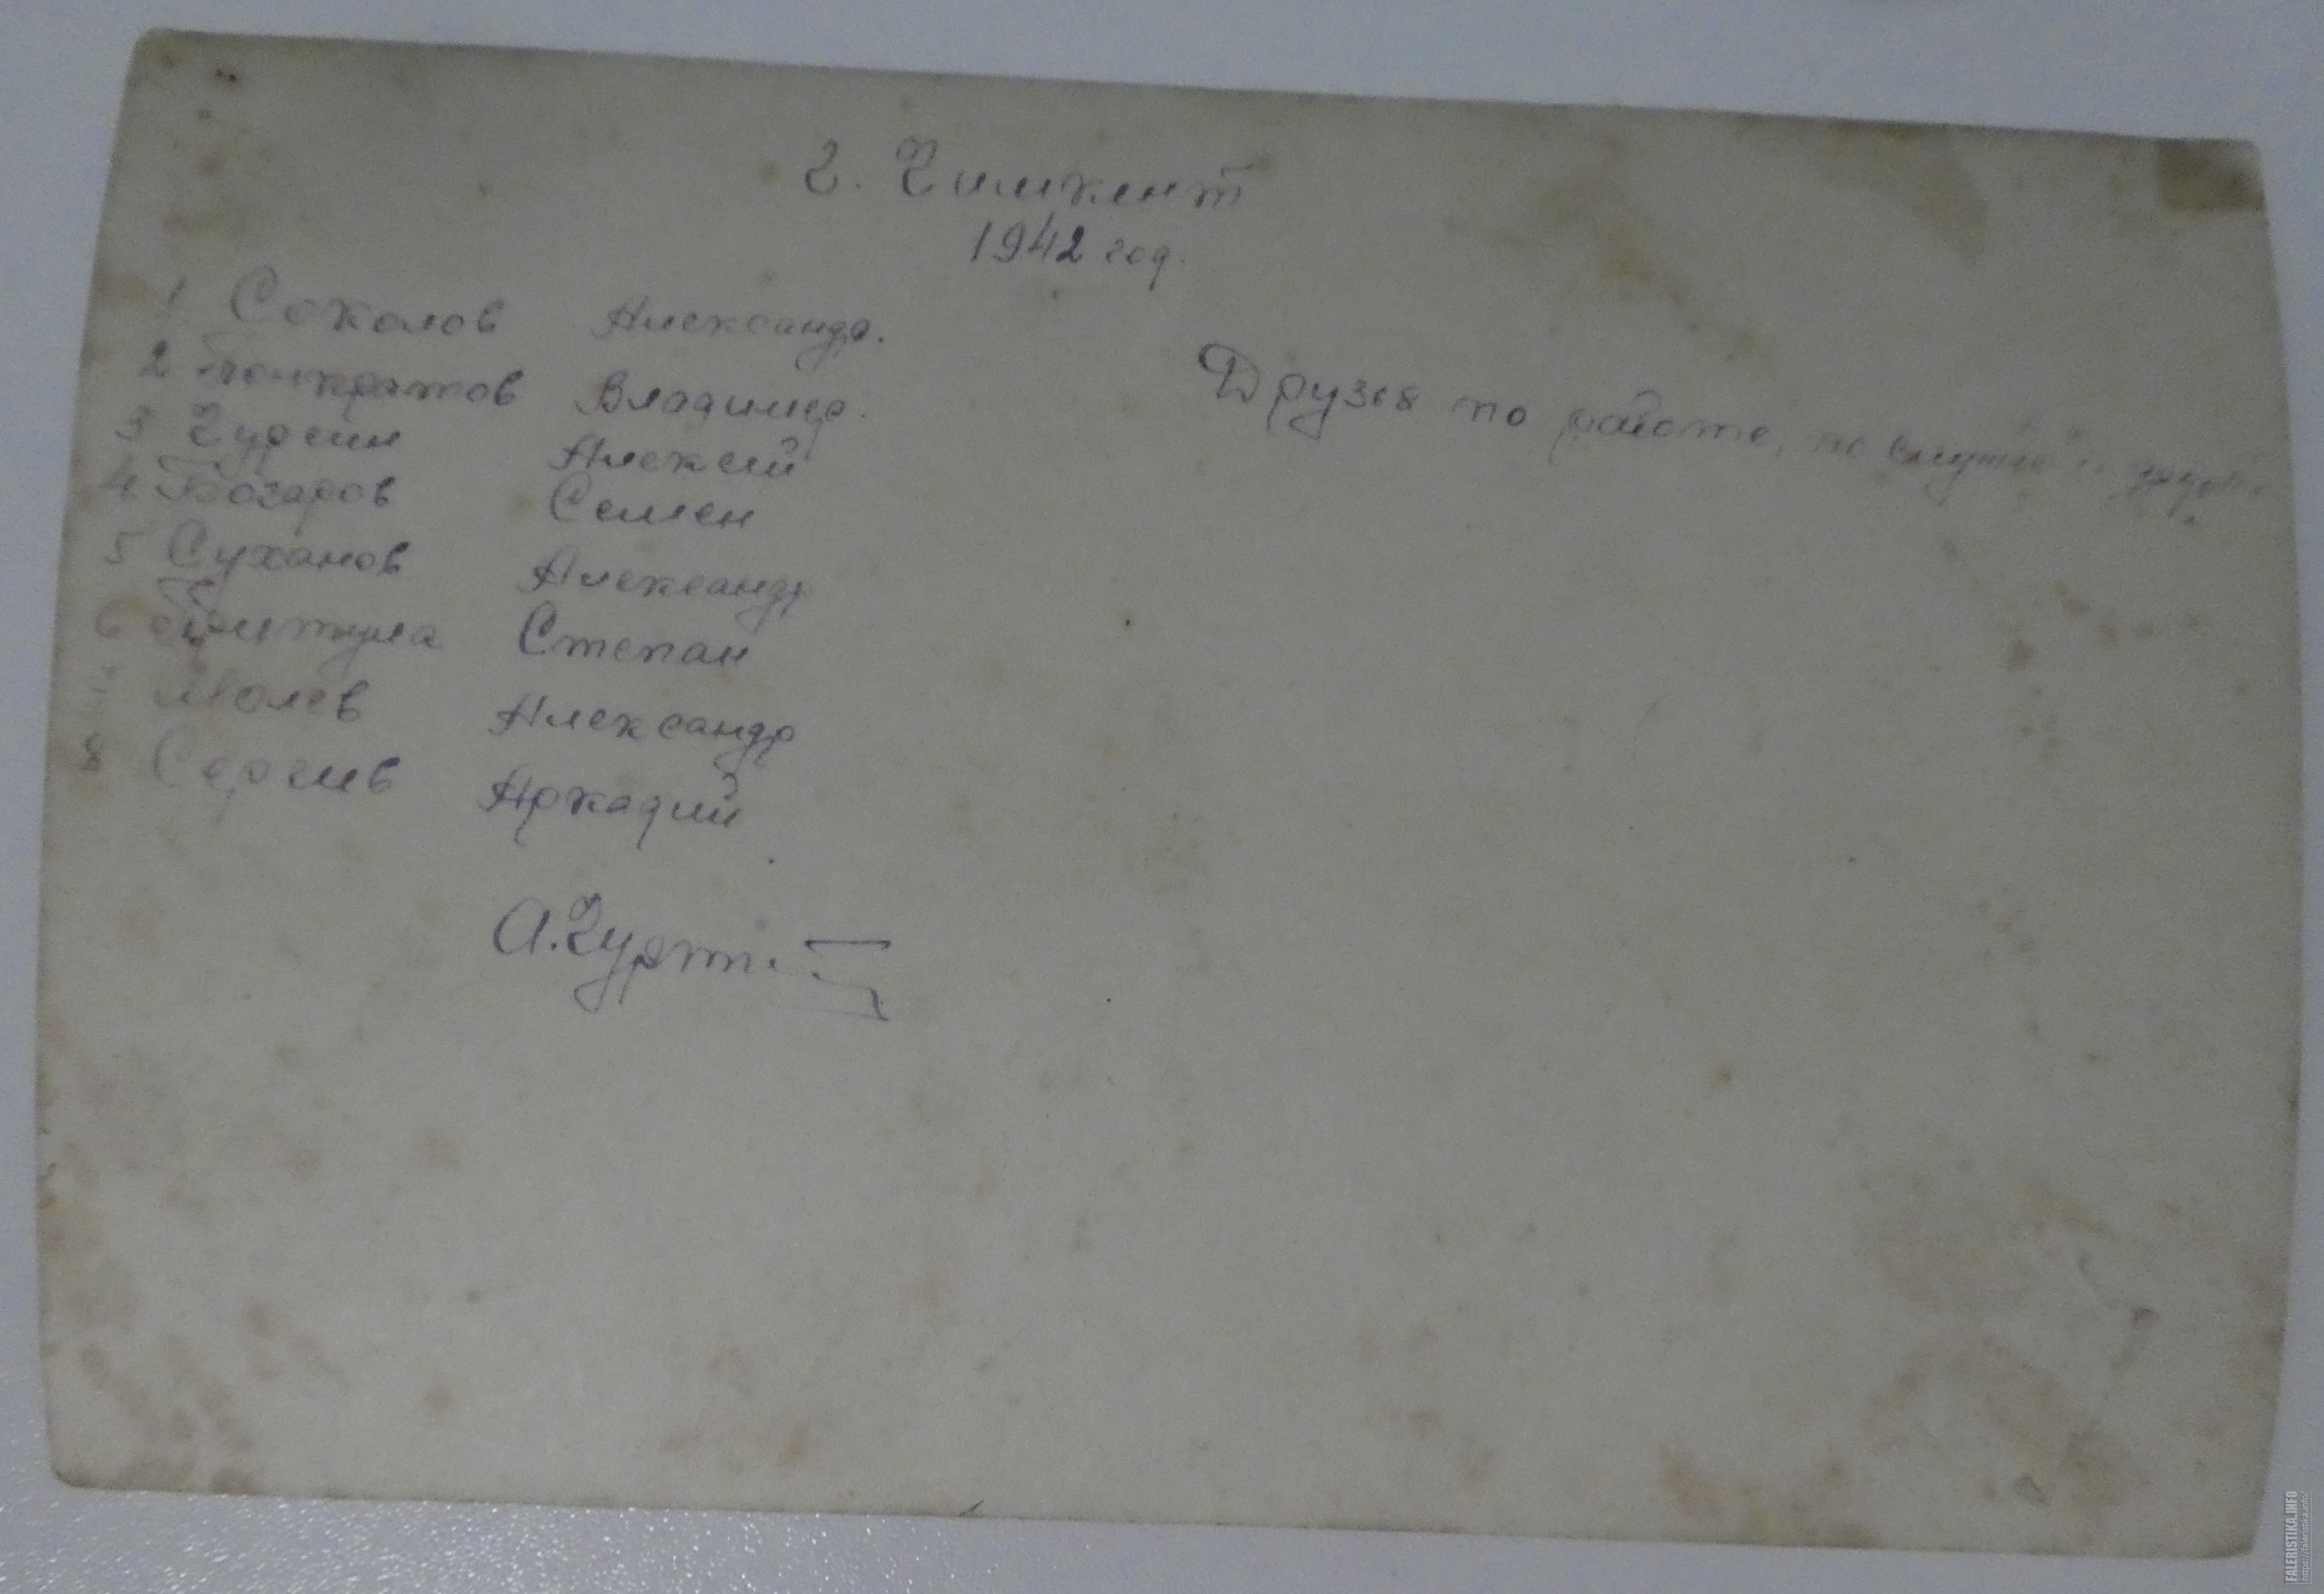 г. Чимкент
1942 год.
1 Соколов Александр.
2 Панкратов Владимир.
3 Чурсин Алексей
4 Бочаров Семен
5 Суханов Александр
6 Степан
7 Молев Александр
8 Сергиев Аркадий
Друзья по работе, по службе и дружбе
А.
FALERISTIKA.INFO
https://faleristika.info/